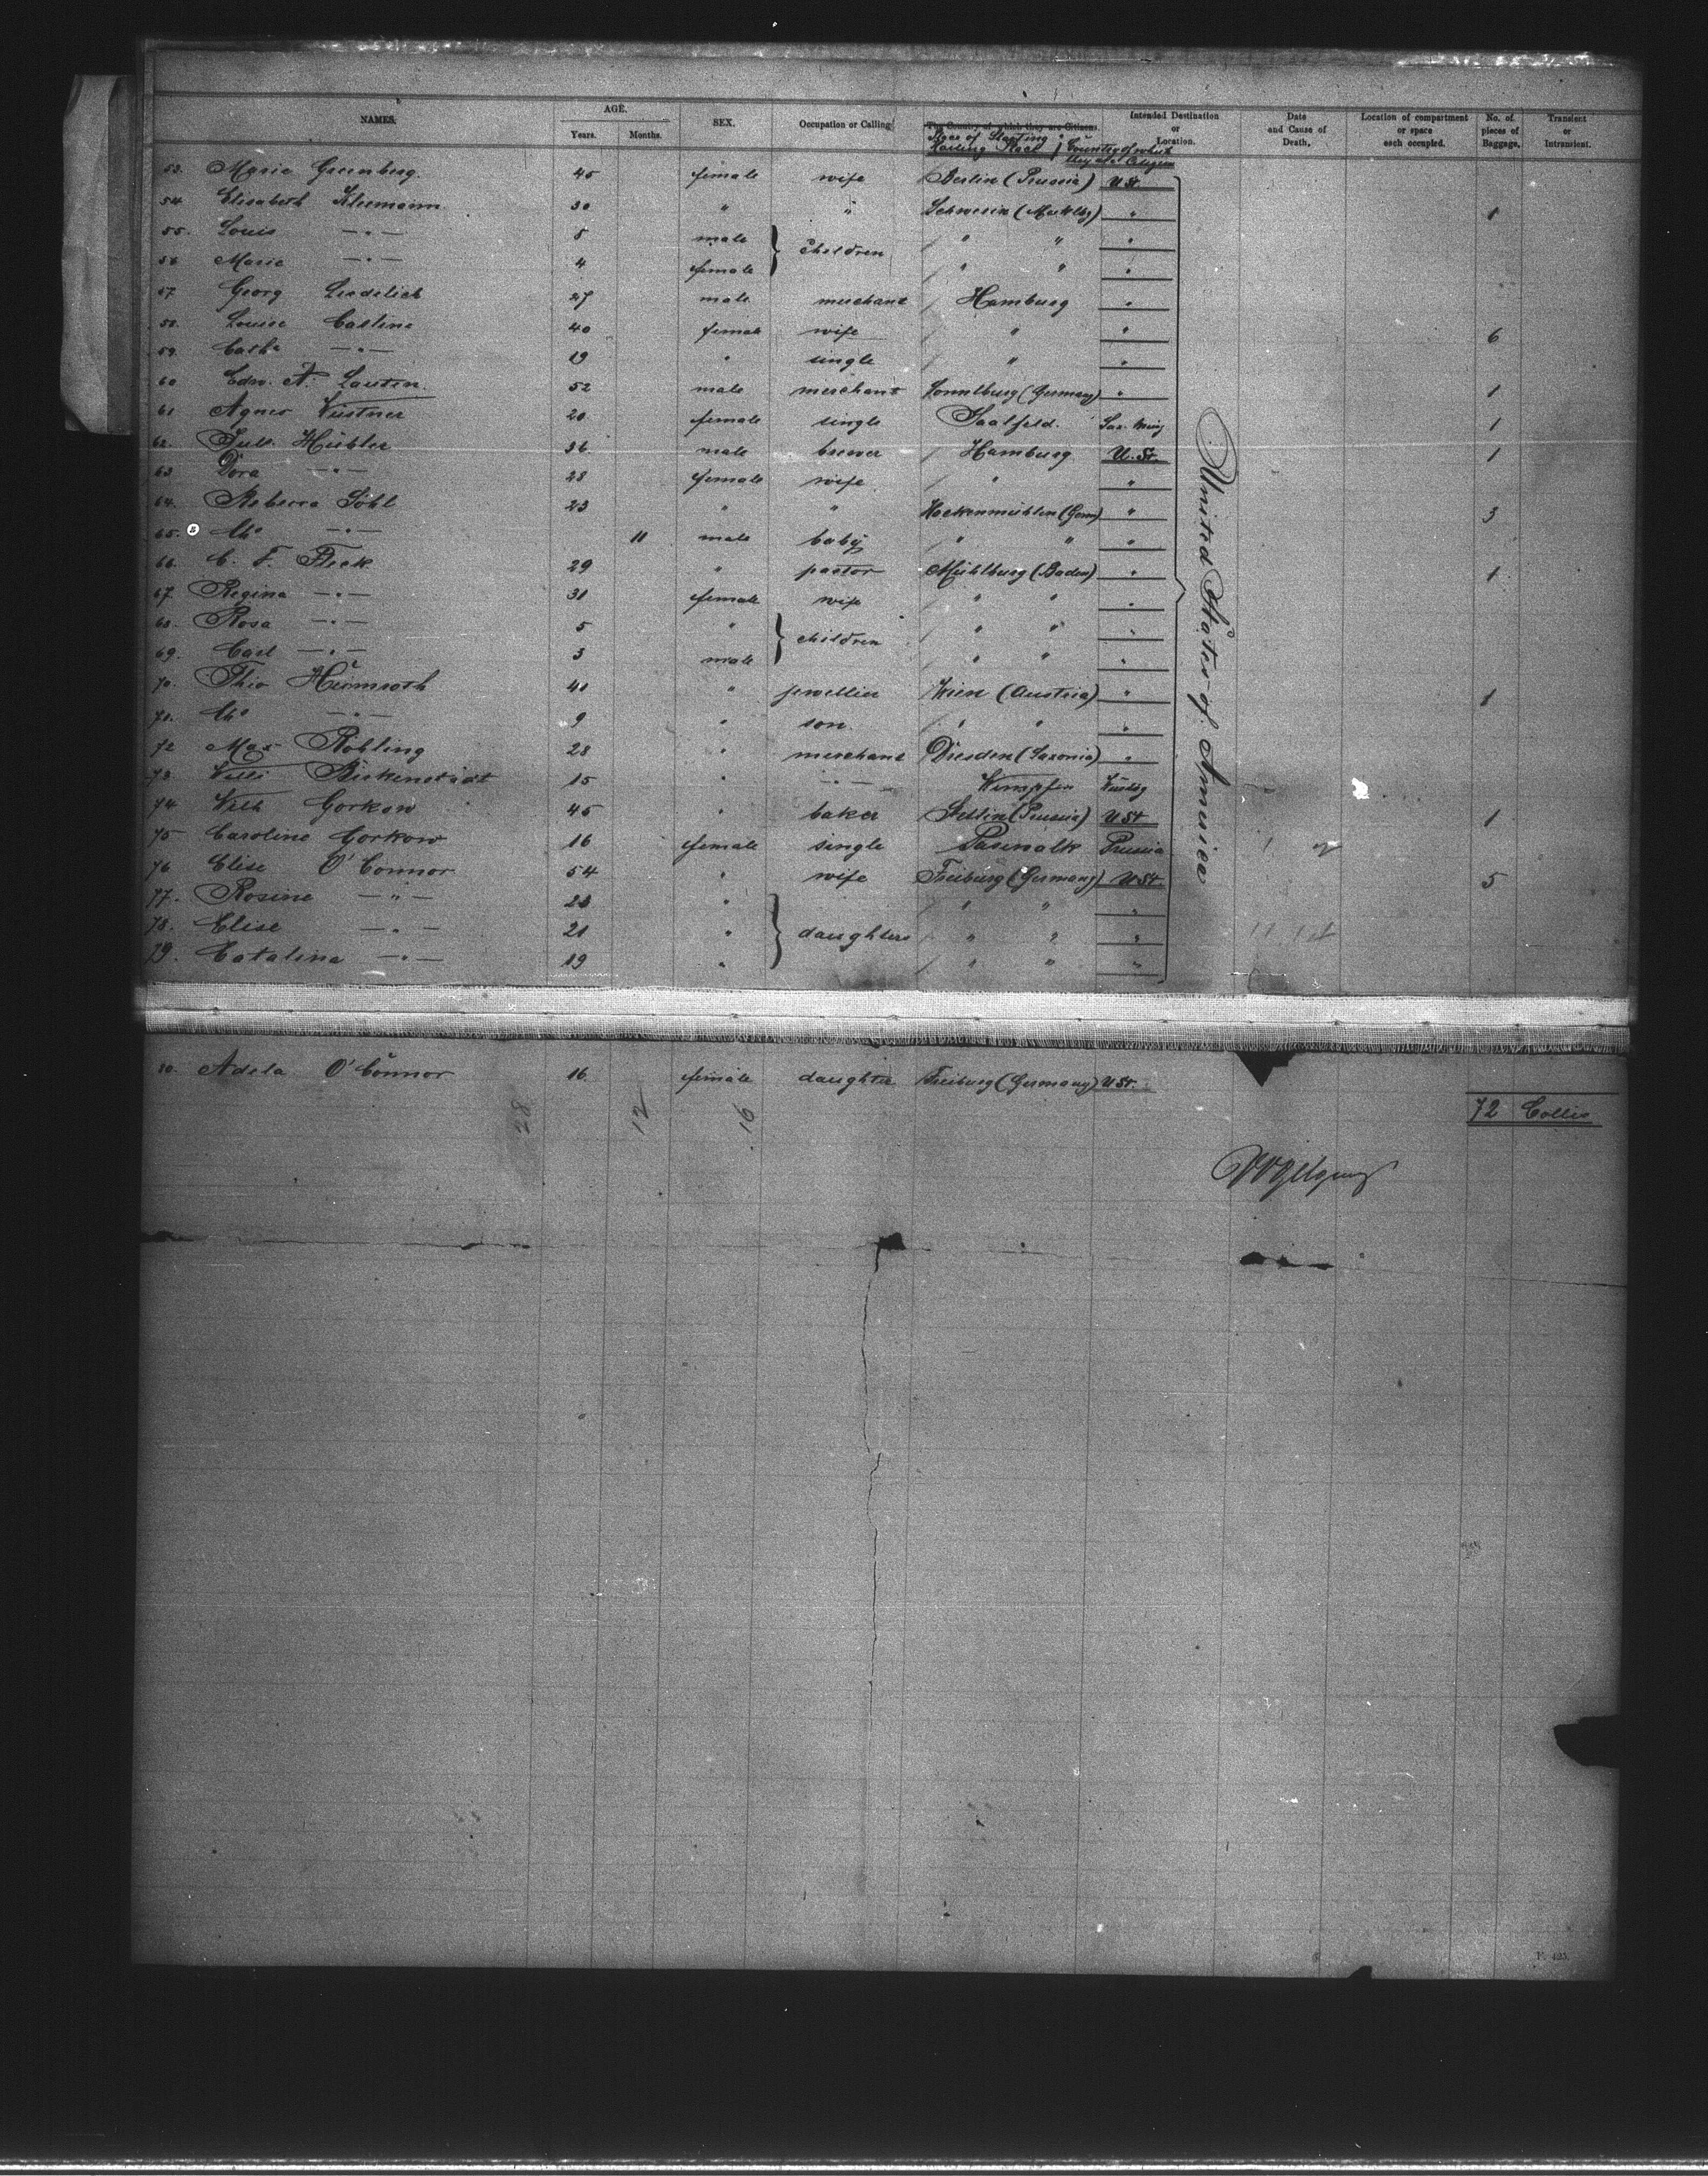 NAMES. AGE. Years. Months. SEX. Occupation or Calling The Country of which they are Citizens. Intended Destination or Location. Date and Cause of Death. Location of compartment or space each occupied. No. of pieces of Baggage. Transient or Intransient.
Place of Starting
Country of which they are Citizens
53. Marie Greenberg. 45 female wife Berlin (Prussia) U St.
54 Elisabeth Kleemann 30 " " Schwerin (Mecklbg) " 1
55. Louis —"— 8 male children " " "
56 Marie —"— 4 female " " "
57. Georg 27 male merchant Hamburg "
58. Louise Castine 40 female wife " " 6
59. Cath. —"— 19 " single " "
60 Edw. A. Lauten. 52 male merchant (Germany) " 1
61 Agnes Küstner 20 female single Saalfeld. Sax. Mng 1
62. Jul. Hübler 36 male brewer Hamburg U. St. 1
63 Dora —"— 28 female wife " "
64. Rebecca Söhl 23 " " Hackenmühlen (Germ) " 3
65. Chs —"— 11 male baby " " "
66. C. F. Fleck 29 " pastor Mühlburg (Baden) " 1
67. Regina —"— 31 female wife " " "
68. Rosa —"— 5 " children " " "
69. Carl —"— 3 male " " "
70. Theo Heimroth 41 " jewellier Wien (Austria) " 1
71. Chs —"— 9 " son " " "
72 Max Röhling 28 " merchant Dresden (Saxonia) "
73 Willi Bickenstädt 15 " —"— Wimpfen
74 Wilh Gorkow 45 " baker Stettin (Prussia) U St 1
75 Caroline Gorkow 16 female single Pasewalk Prussia
76 Elise O'Connor 54 " wife Freiburg (Germany) U St. 5
77. Rosine —"— " daughters " " "
78. Elise —"— 21 " " " "
79. Catalina —"— 19 " " " "
United States of America
80. Adela O'Connor 16 female daughter Freiburg (Germany) U St.
28 12 16
72 Collis